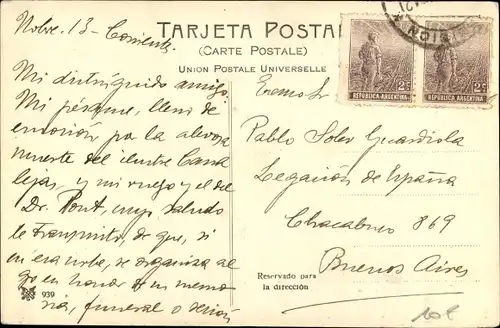 Nobre. 13 - Corriente.
TARJETA POSTAL
(CARTE POSTALE)
UNION POSTALE UNIVERSELLE
Mi distinguido amigo:
Mi pésame, lleno de
emocion por la alevosa
muerte del ilustre Cana
lejas, y mi ruego y el del
Dr. Pont, cuyo saludo
le transmito, de que, si
en esa urbe, se organiza al
go en honor de su memo
ria, funeral o
939
2c 2c
REPUBLICA ARGENTINA REPUBLICA ARGENTINA
Excmo Sr
Pablo Soler Guardiola
Legación de España
Chacabuco 869
Buenos Aires
Reservado para
la dirección